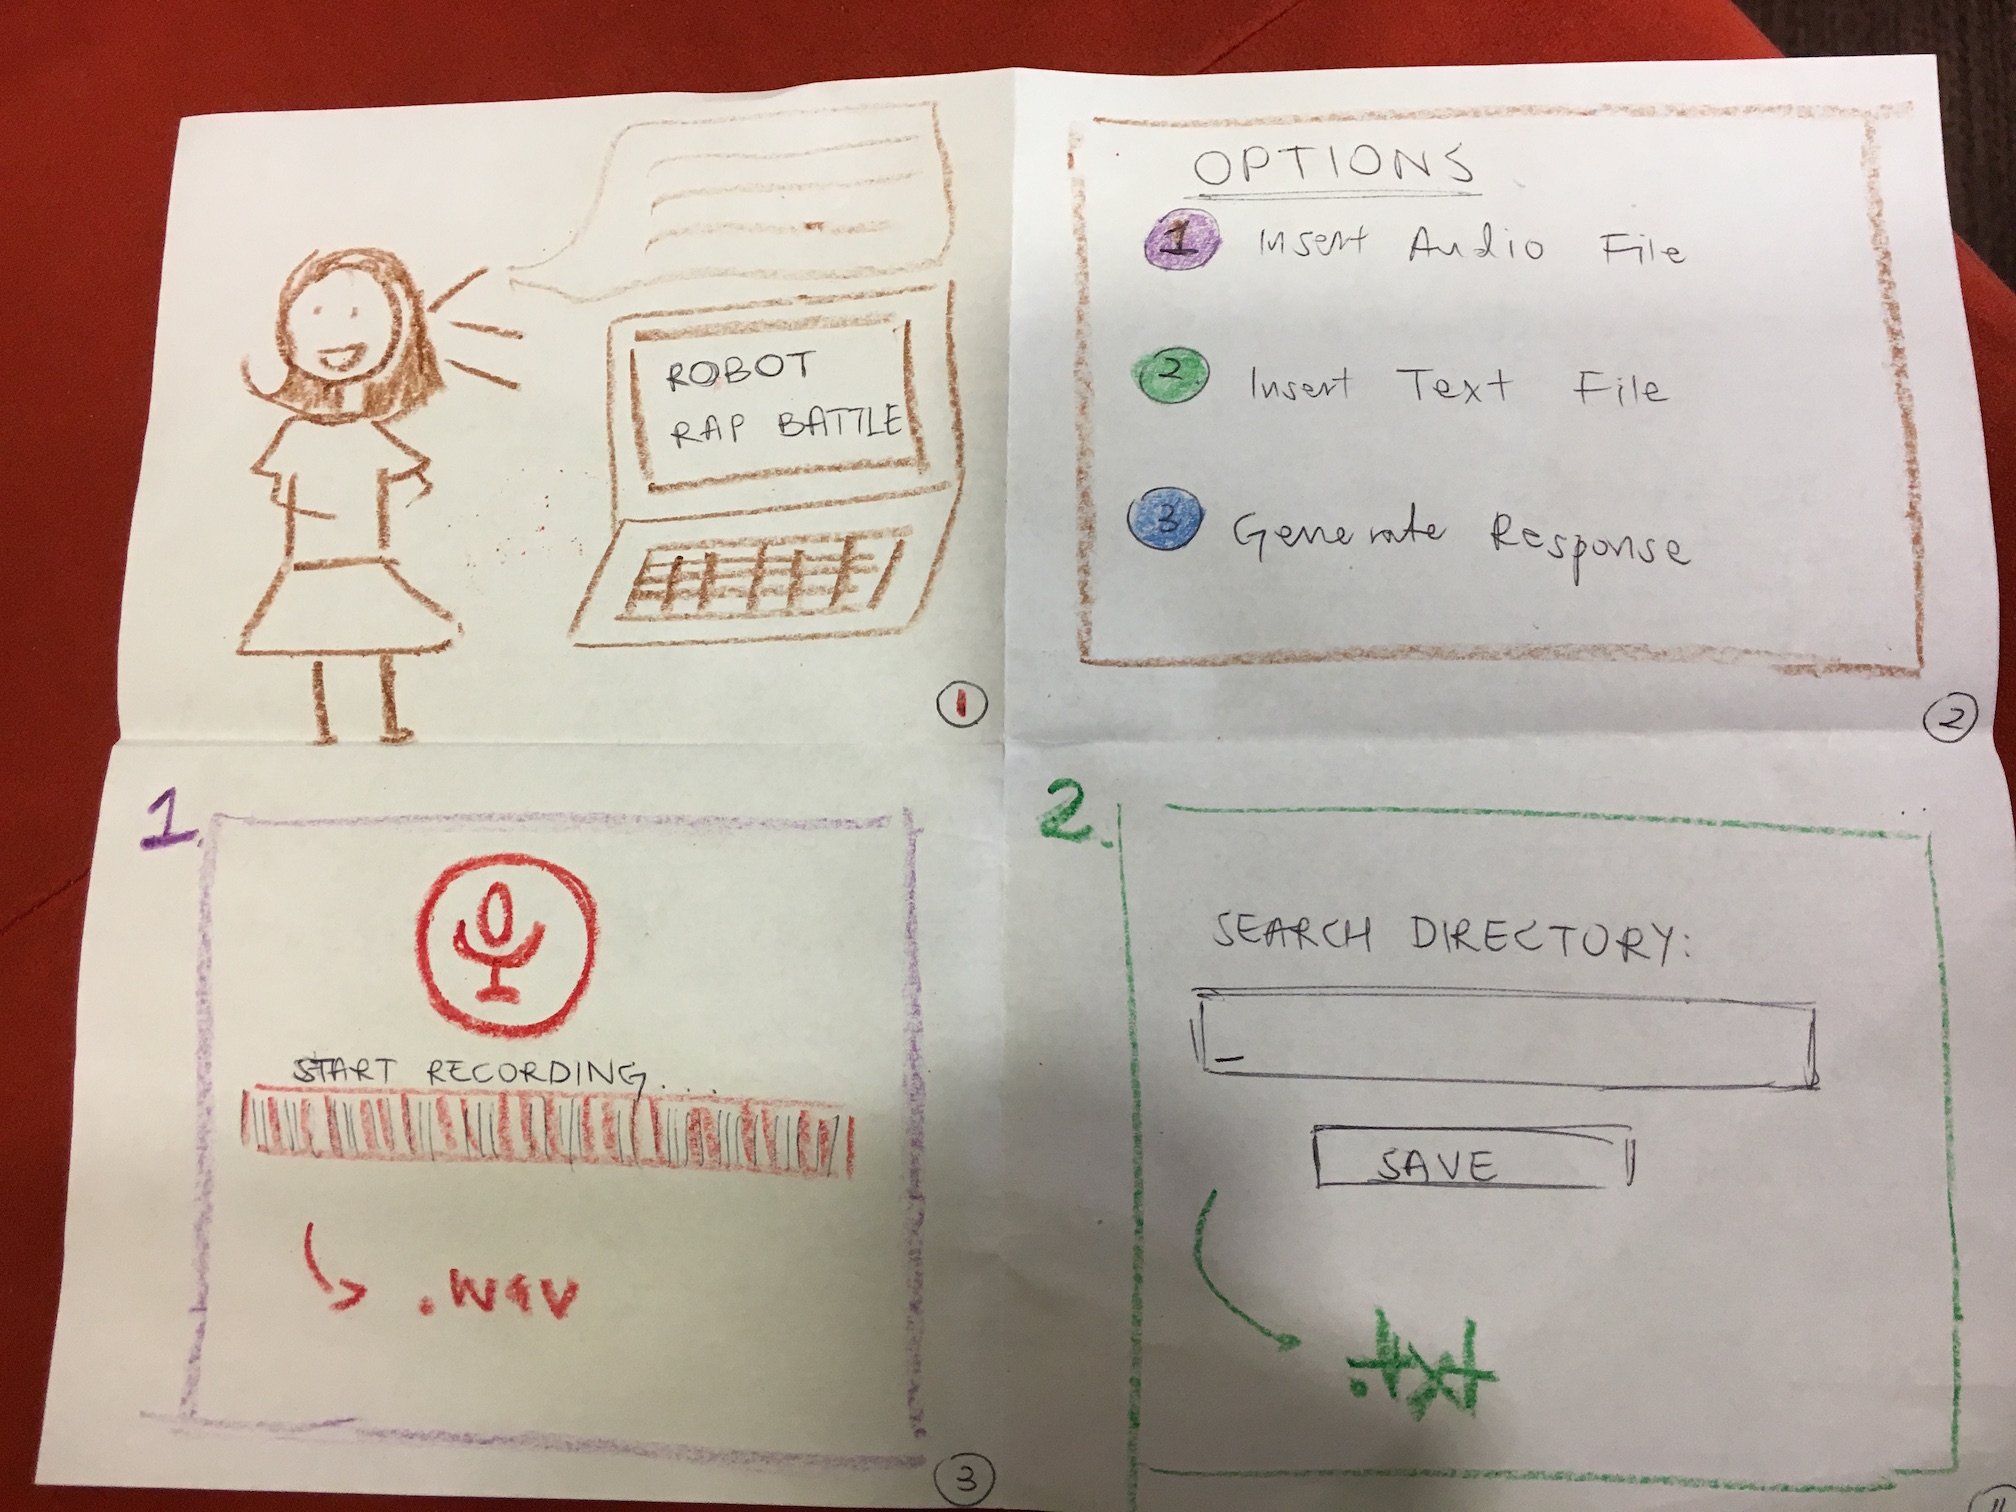 ROBOT
RAP BATTLE
1
OPTIONS
1 Insert Audio File
2 Insert Text File
3 Generate Response
2
1.
START RECORDING...
.wav
3
2.
SEARCH DIRECTORY:
SAVE
.txt